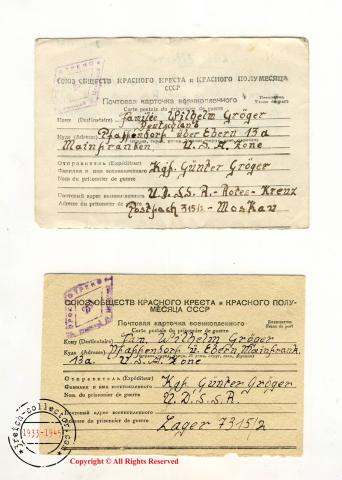 СОЮЗ ОБЩЕСТВ КРАСНОГО КРЕСТА и КРАСНОГО ПОЛУМЕСЯЦА
СССР
Почтовая карточка военнопленного
Carte postale du prisonnier de guerre
Кому (Destinataire) Familie Wilhelm Gröger
Deutschland
Куда (Adresse) Pfaffendorf über Ebern 13a
Mainfranken U.S.A. Zone
Отправитель (Expéditeur)
Фамилия и имя военнопленного Kgf. Günter Gröger
Nom du prisonnier de guerre
Почтовый адрес военнопленного U.D.S.S.R.-Rotes-Kreuz
Adresse du prisonnier de guerre Postfach 315/2 - Moskau
СОЮЗ ОБЩЕСТВ КРАСНОГО КРЕСТА и КРАСНОГО ПОЛУ-
МЕСЯЦА СССР
Почтовая карточка военнопленного
Carte postale du prisonnier de guerre
Franc de port
Кому (Destinataire) Fam. Wilhelm Gröger
Куда (Adresse) Pfaffendorf ü. Ebern, Mainfrank.
13a. U.S.A. Zone
Отправитель (Expéditeur)
Фамилия и имя военнопленного Kgf. Günter Gröger
Nom du prisonnier de guerre U.D.S.S.R.
Почтовый адрес военнопленного
Adresse du prisonnier de guerre Lager 7315/2
3reich-collector.com
1933-1945
Copyright © All Rights Reserved